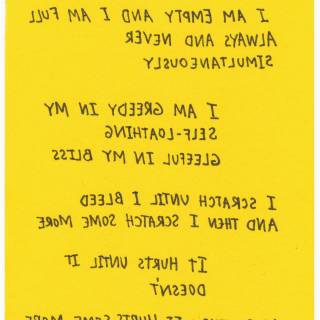 I AM EMPTY AND I AM FULL
ALWAYS AND NEVER
SIMULTANEOUSLY
I AM GREEDY IN MY
SELF-LOATHING
GLEEFUL IN MY BLISS
I SCRATCH UNTIL I BLEED
AND THEN I SCRATCH SOME MORE
IT HURTS UNTIL IT
DOESN'T
HURTS SOME MORE